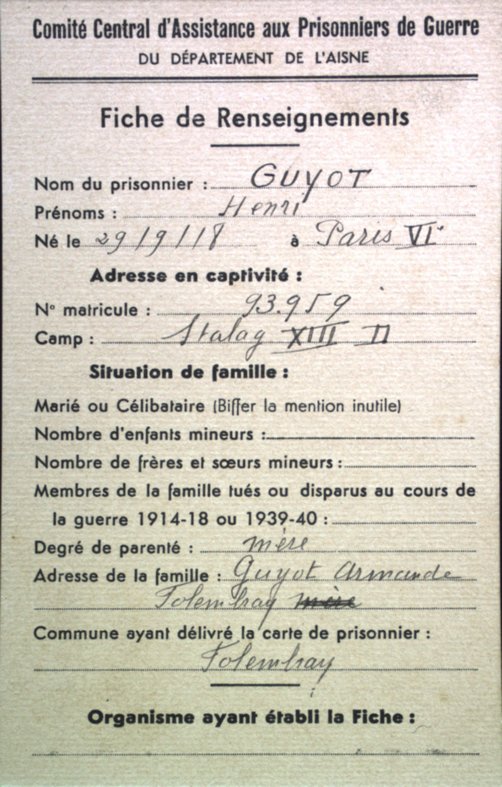 Comité Central d'Assistance aux Prisonniers de Guerre
DU DÉPARTEMENT DE L'AISNE
Fiche de Renseignements
Nom du prisonnier : GUYOT
Prénoms : Henri
Né le 29/9/18 à Paris VI
Adresse en captivité :
N° matricule : 93.959
Camp : Stalag XIII
Situation de famille :
Marié ou Célibataire (Biffer la mention inutile)
Nombre d'enfants mineurs :
Nombre de frères et sœurs mineurs :
Membres de la famille tués ou disparus au cours de
la guerre 1914-18 ou 1939-40 :
Degré de parenté : mère
Adresse de la famille : Guyot Armande
Folembray mère
Commune ayant délivré la carte de prisonnier :
Folembray
Organisme ayant établi la Fiche :